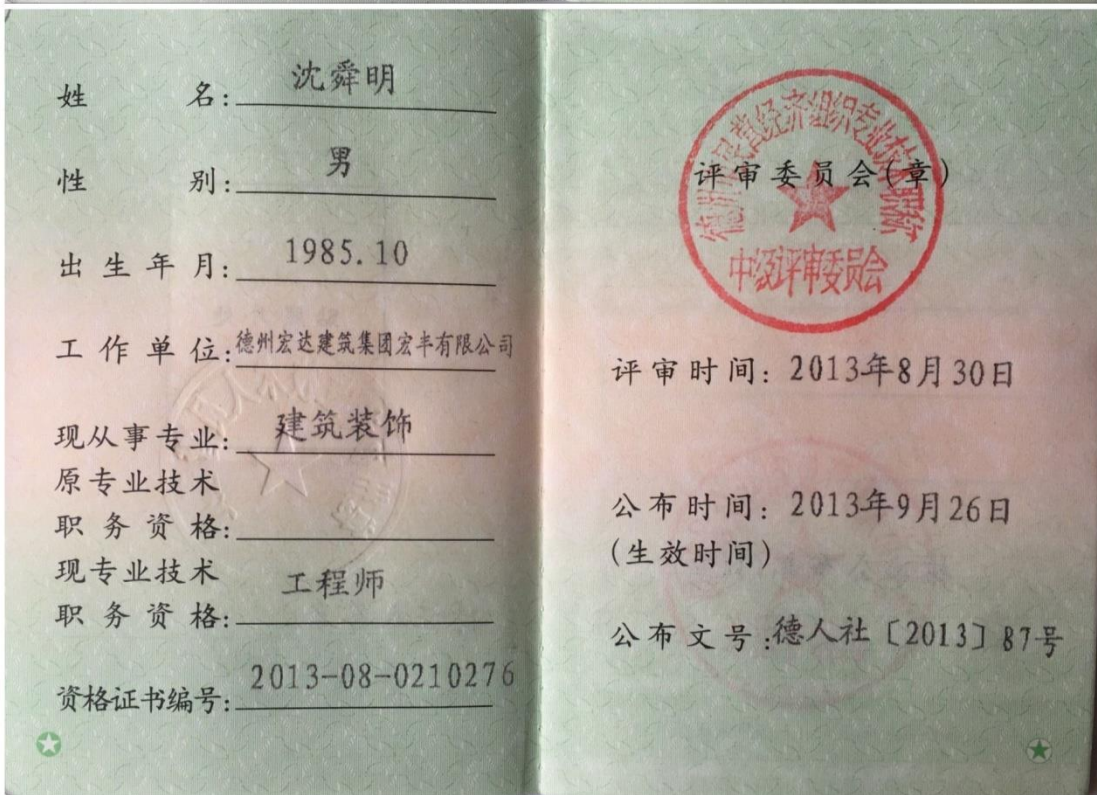 姓 名: 沈舜明
性 别: 男
出生年月: 1985.10
工作单位: 德州宏达建筑集团宏丰有限公司
现从事专业: 建筑装饰
原专业技术
职务资格:
现专业技术
职务资格: 工程师
资格证书编号: 2013-08-0210276
评审委员会(章)
中级评审委员会
评审时间: 2013年8月30日
公布时间: 2013年9月26日
(生效时间)
公布文号: 德人社〔2013〕87号